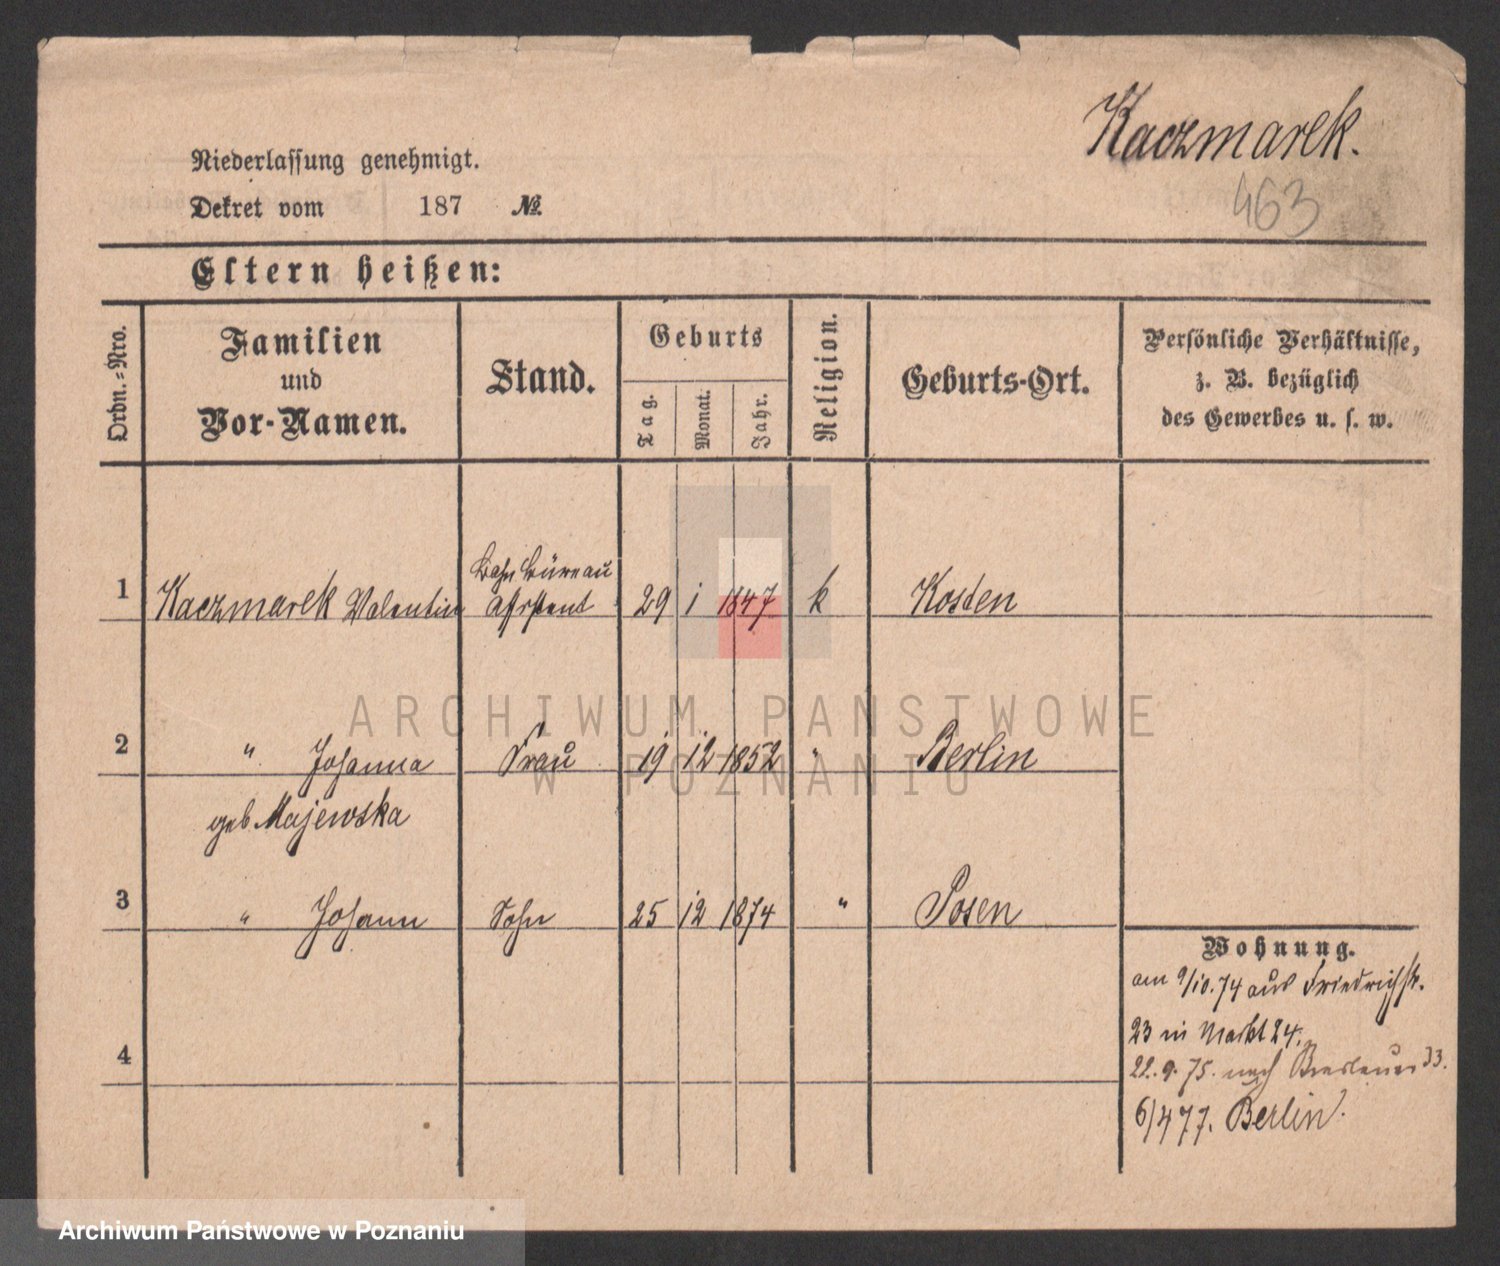 Kaczmarek.
463
Niederlassung genehmigt.
Dekret vom 187 №
Eltern heißen:
Ordn.-Nro.
Familien und Vor-Namen.
Stand.
Geburts
Tag.
Monat.
Jahr.
Religion.
Geburts-Ort.
Persönliche Verhältnisse,
z. B. bezüglich
des Gewerbes u. s. w.
Bahn Büreau
1 Kaczmarek Valentin Assistent 29 1 1847 k Kosten
ARCHIWUM PAŃSTWOWE
2 " Johanna Frau 19 12 1852 " Berlin
W POZNANIU
geb. Majewska
3 " Johann Sohn 25 12 1874 " Posen
Wohnung.
am 9/10.74 aus Friedrichstr.
23 in Markt 24.
22.9.75. nach Breslauer 33.
4
6/4 77. Berlin.
Archiwum Państwowe w Poznaniu